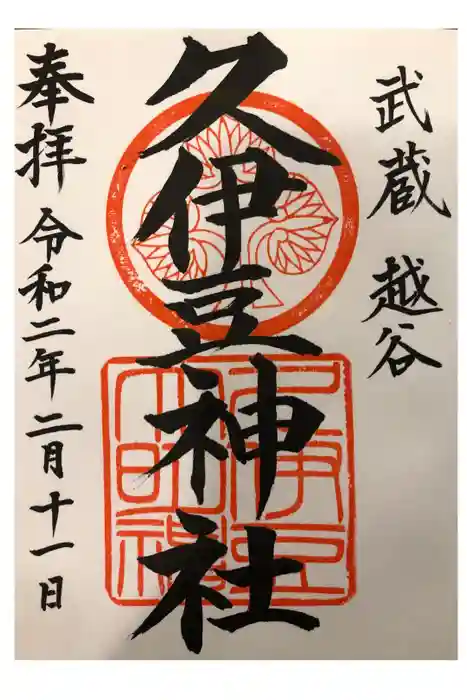 武蔵 越谷
久伊豆神社
奉拝 令和二年二月十一日